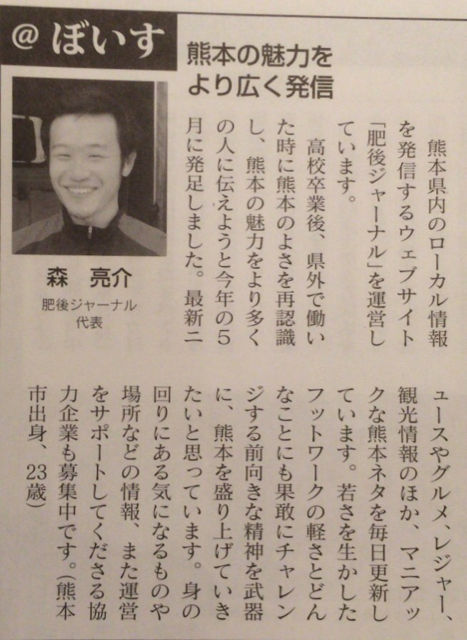 @ ぼいす
熊本の魅力を
より広く発信
森 亮介
肥後ジャーナル
代表
熊本県内のローカル情報
を発信するウェブサイト
「肥後ジャーナル」を運営し
ています。
高校卒業後、県外で働い
た時に熊本のよさを再認識
し、熊本の魅力をより多く
の人に伝えようと今年の5
月に発足しました。最新ニ
ュースやグルメ、レジャー、
観光情報のほか、マニアッ
クな熊本ネタを毎日更新し
ています。若さを生かした
フットワークの軽さとどん
なことにも果敢にチャレン
ジする前向きな精神を武器
に、熊本を盛り上げていき
たいと思っています。身の
回りにある気になるものや
場所などの情報、また運営
をサポートしてくださる協
力企業も募集中です。(熊本
市出身、23歳)